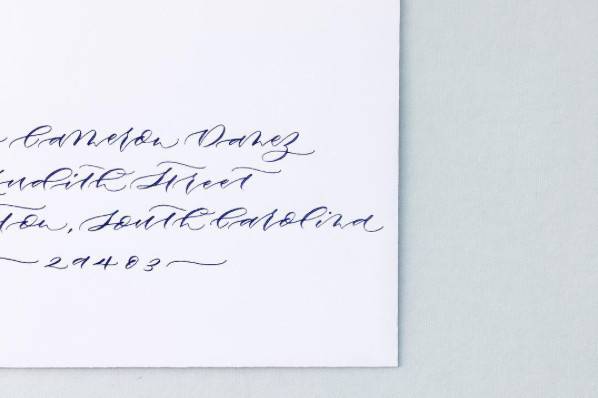 Cameron Danez
udith Street
ton, South Carolina
29403